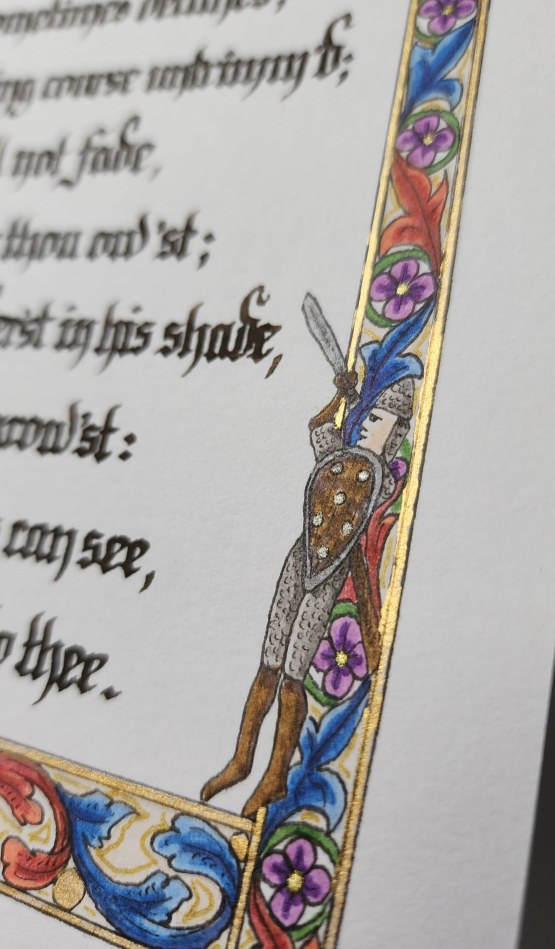 ometimes declines,
ing course untrimm'd;
l not fade,
thou ow'st;
in his shade,
row'st:
can see,
o thee.